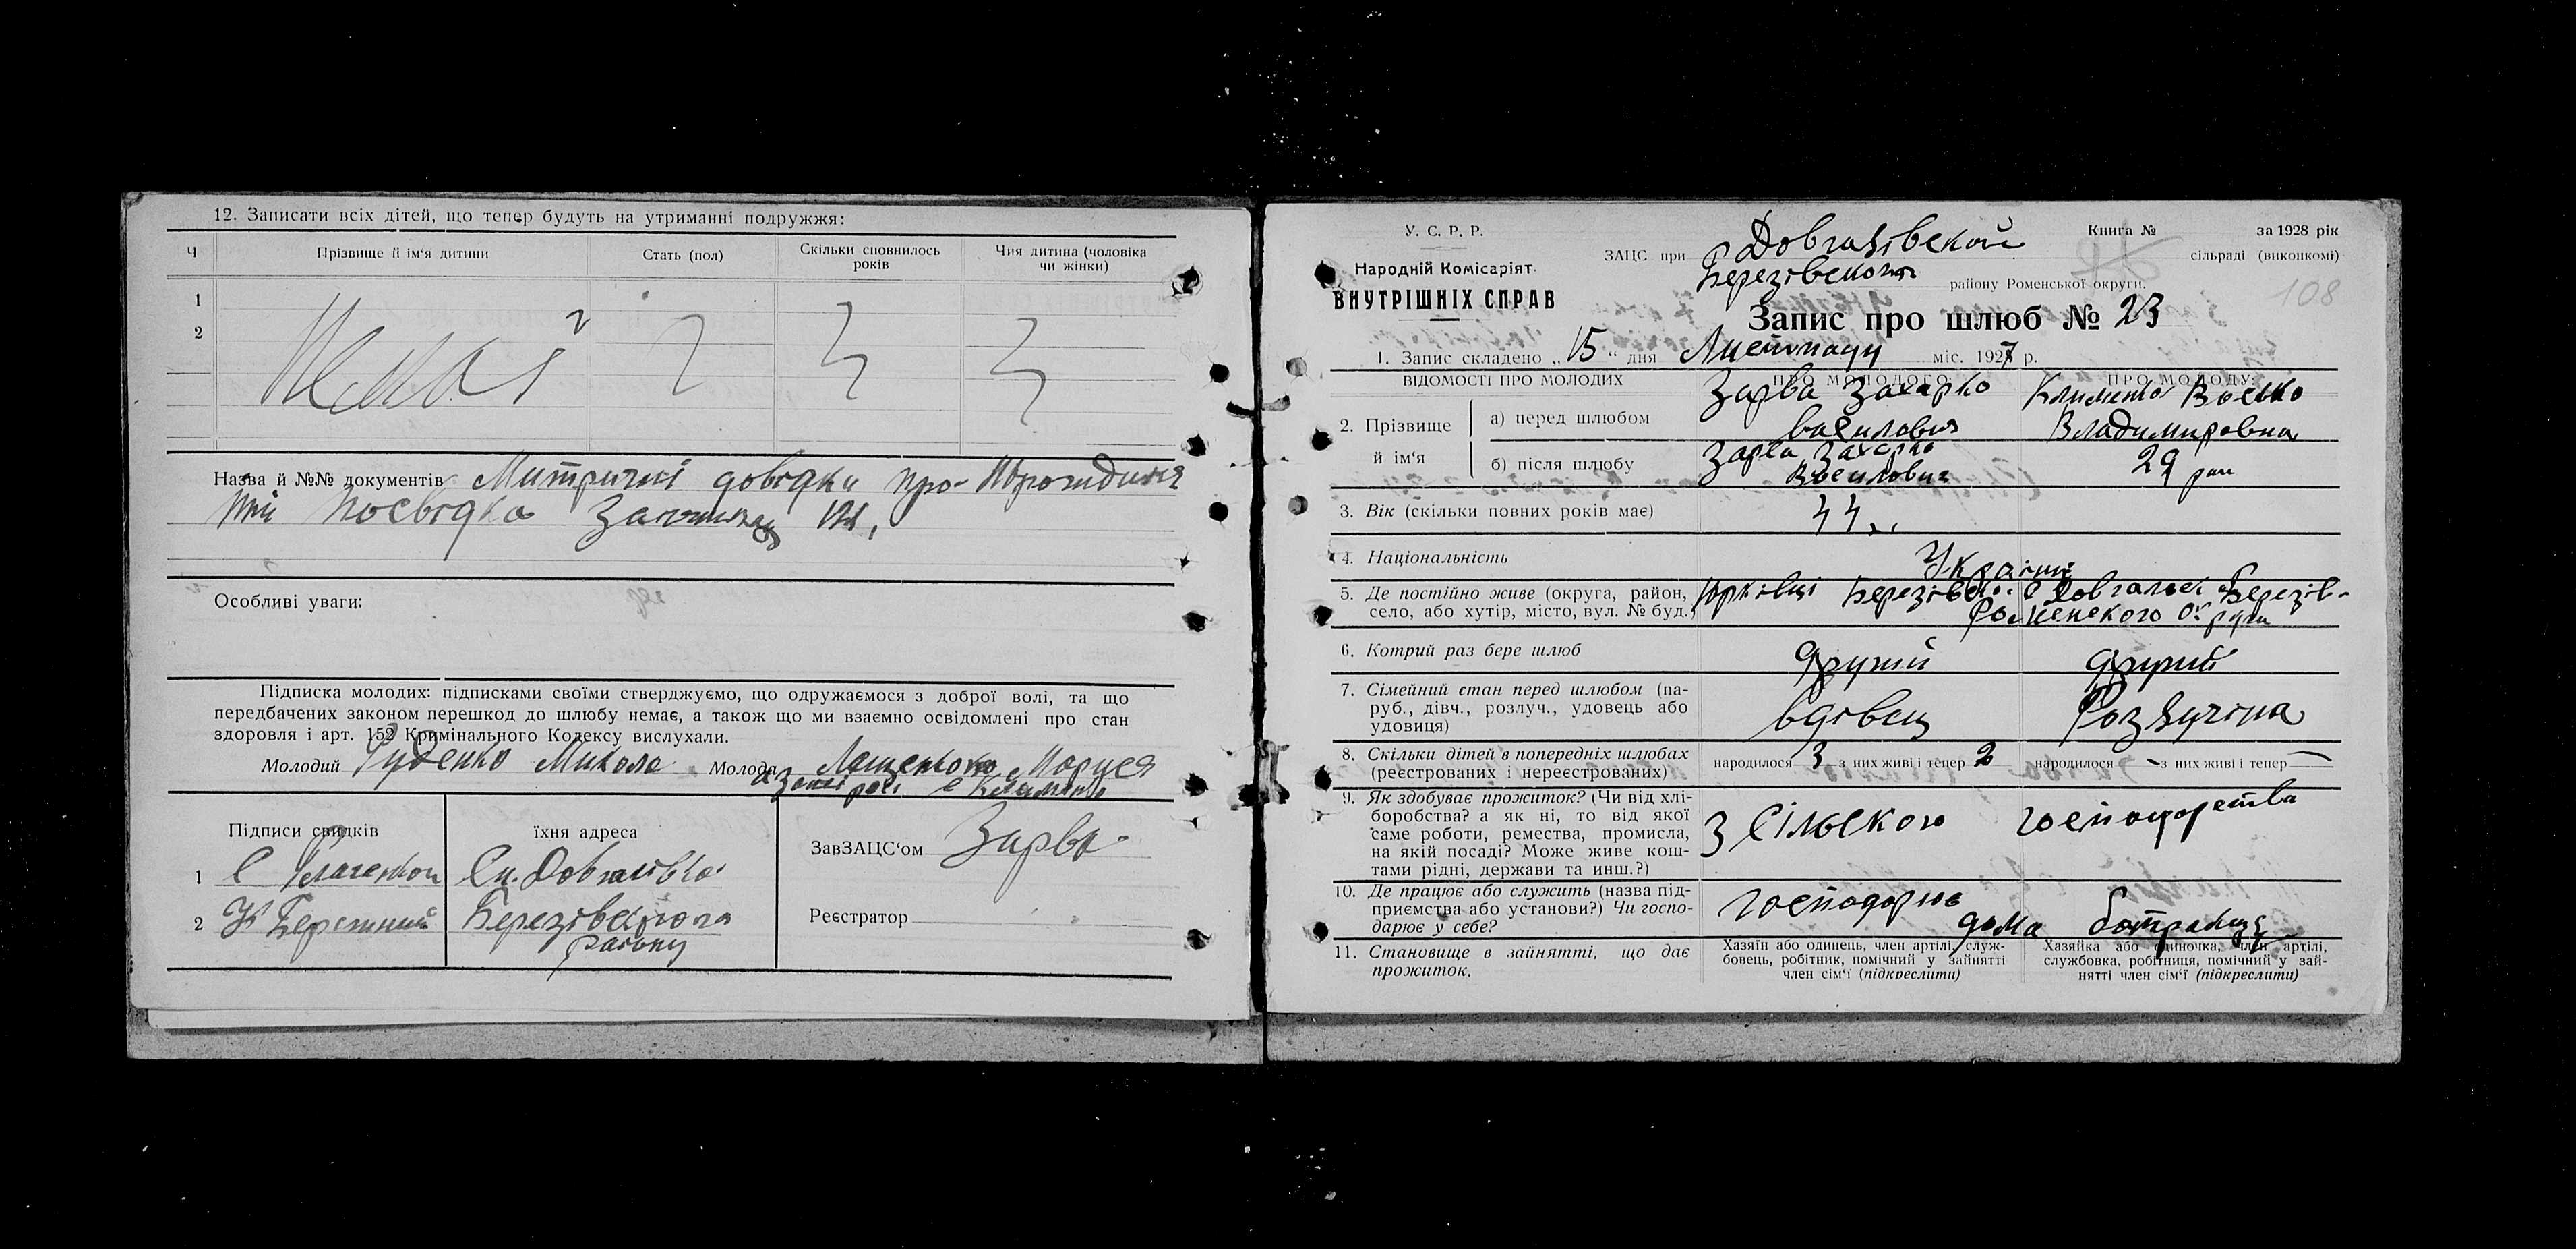 12. Записати всіх дітей, що тепер будуть на утриманні подружжя:
Ч
Прізвище й ім'я дитини
Стать (пол)
Скільки сповнилось
років
Чия дитина (чоловіка
чи жінки)
1
2
Немає
Назва й №№ документів Митричні довідки про
посвідка
Особливі уваги:
Підписка молодих: підписками своїми стверджуємо, що одружаємося з доброї волі, та що
передбачених законом перешкод до шлюбу немає, а також що ми взаємно освідомлені про стан
здоровля і арт. 152 Кримінального Кодексу вислухали.
Молодий Руденко Микола Молода Маруся
Підписи свидків
їхня адреса
1
Довгалівка
2 Бережний
Березівського
району
ЗавЗАЦС'ом Зарва
Реєстратор
У. С. Р. Р.
Народній Комісаріят
ВНУТРІШНІХ СПРАВ
Книга №
за 1928 рік
ЗАЦС при Довгалівской сільраді (виконкомі)
Березівського району Роменської округи.
108
Запис про шлюб № 23
1. Запис складено „15“ дня Листопаду міс. 1927 р.
ВІДОМОСТІ ПРО МОЛОДИХ
ПРО МОЛОДОГО
ПРО МОЛОДУ
2. Прізвище
й ім'я
а) перед шлюбом
Зарва Захарко
Василович
Владимировна
б) після шлюбу
Зарва Захарко
Василович
29 рок
3. Вік (скільки повних років має)
44 р.
4. Національність
Україн
5. Де постійно живе (округа, район,
село, або хутір, місто, вул. № буд.)
Юрківці Березівськ. с Довгалівс Березів-
Роменского Округи
6. Котрий раз бере шлюб
другий
другий
7. Сімейний стан перед шлюбом (па-
руб., дівч., розлуч., удовець або
удовиця)
вдівец
Розлучіна
8. Скільки дітей в попередніх шлюбах
(реєстрованих і нереєстрованих)
народилося 3 з них живі і тепер 2
народилося — з них живі і тепер —
9. Як здобуває прожиток? (Чи від хлі-
боробства? а як ні, то від якої
саме роботи, ремества, промисла,
на якій посаді? Може живе кош-
тами рідні, держави та инш.?)
З Сільского господарства
10. Де працює або служить (назва під-
приємства або установи?) Чи госпо-
дарює у себе?
господорює
дома
11. Становище в зайнятті, що дає
прожиток.
Хазяїн або одинець, член артілі, служ-
бовець, робітник, помічний у зайнятті
член сім'ї (підкреслити)
Хазяйка або одиночка, член артілі,
службовка, робітниця, помічний у зай-
нятті член сім'ї (підкреслити)